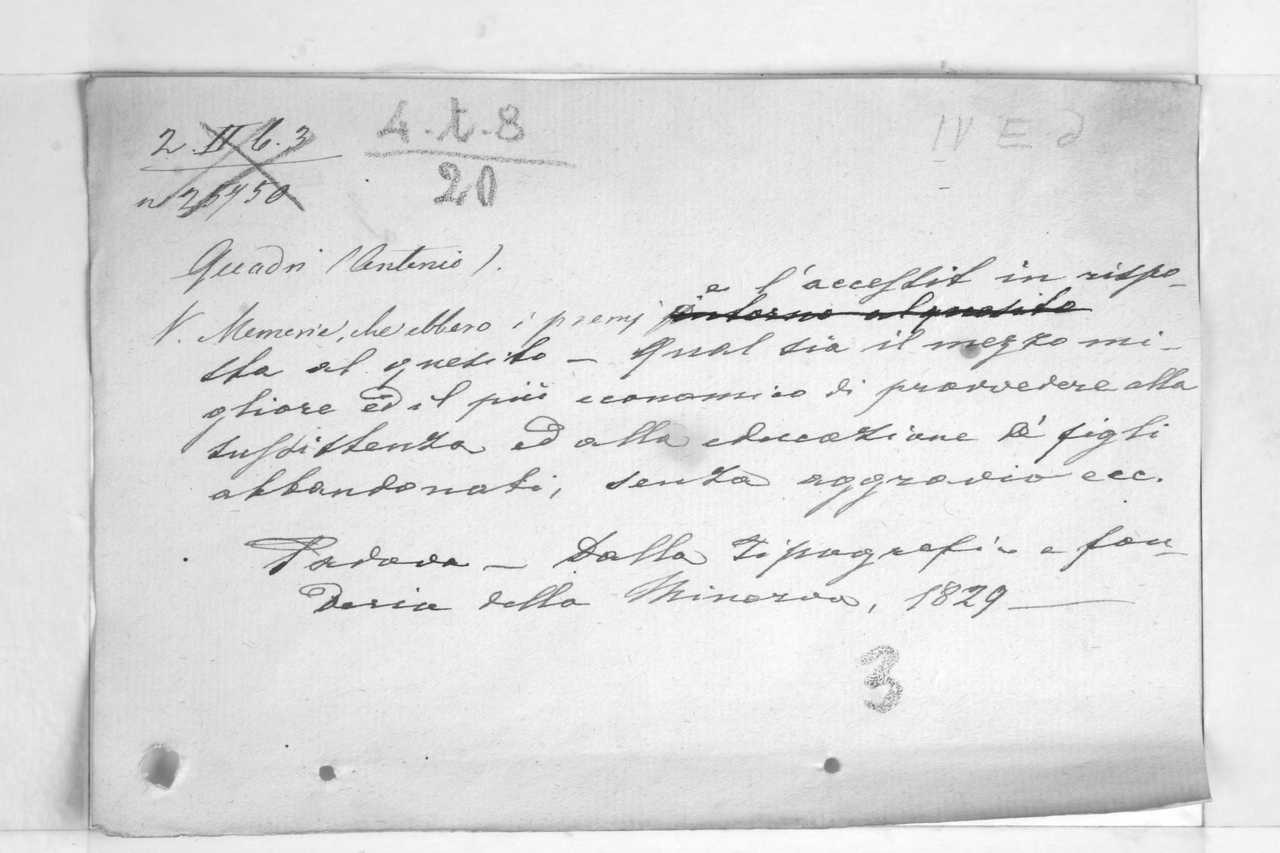 2. II b. 3
4.t.8
20
IV E d
n 25450
Quadri (Antonio).
e l'accessit in rispo-
V. Memorie, che ebbero i premj intorno al quesito
sta al quesito – Qual sia il mezzo mi-
gliore ed il più economico di provvedere alla
sussistenza ed alla educazione de' figli
abbandonati, senza aggravio ecc.
Padova – Dalla Tipografia e fon-
deria della Minerva, 1829 —
3